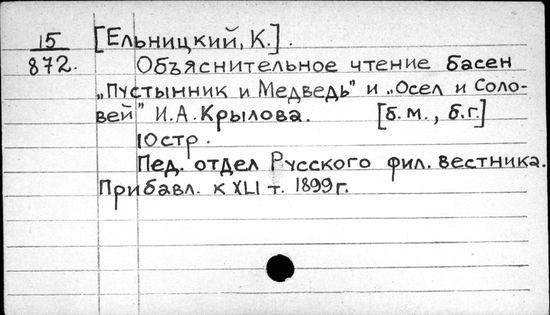 15 [Ельницкий, К.].
872. Объяснительное чтение басен
„Пустынник и Медведь" и „Осел и Соло-
вей" И.А.Крылова. [б.м., б.г.]
10 стр.
Пед. отдел Русского фил. вестника.
Прибавл. к XLI т. 1899 г.